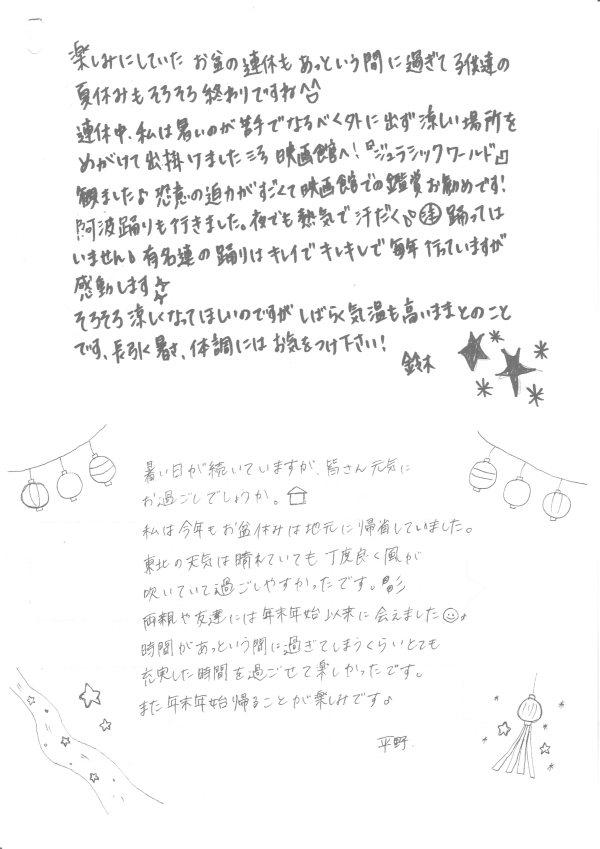 楽しみにしていた お盆の連休も あっという間に過ぎて 子供達の
夏休みもそろそろ終わりですね^^
連休中、私は暑いのが苦手でなるべく外に出ず 涼しい場所を
めがけて出掛けましたころ 映画館へ!『ジュラシックワールド』
観ました♪ 恐竜の迫力がすごくて映画館での鑑賞お勧めです!
阿波踊りも行きました。夜でも熱気で汗だく 踊っては
いません♪ 有名連の踊りはキレイでキレキレで毎年行っていますが
感動します☆
そろそろ涼しくなってほしいのですが しばらく気温も高いままとのこと
です、長引く暑さ、体調にはお気をつけ下さい!
鈴木
暑い日が続いていますが、皆さん元気に
お過ごしでしょうか。
私は今年もお盆休みは地元に帰省していました。
東北の天気は晴れていても丁度良く風が
吹いていて過ごしやすかったです。
両親や友達には年末年始以来に会えました☺♪
時間があっという間に過ぎてしまうくらいとても
充実した時間を過ごせて楽しかったです。
また年末年始帰ることが楽しみです♪
平野